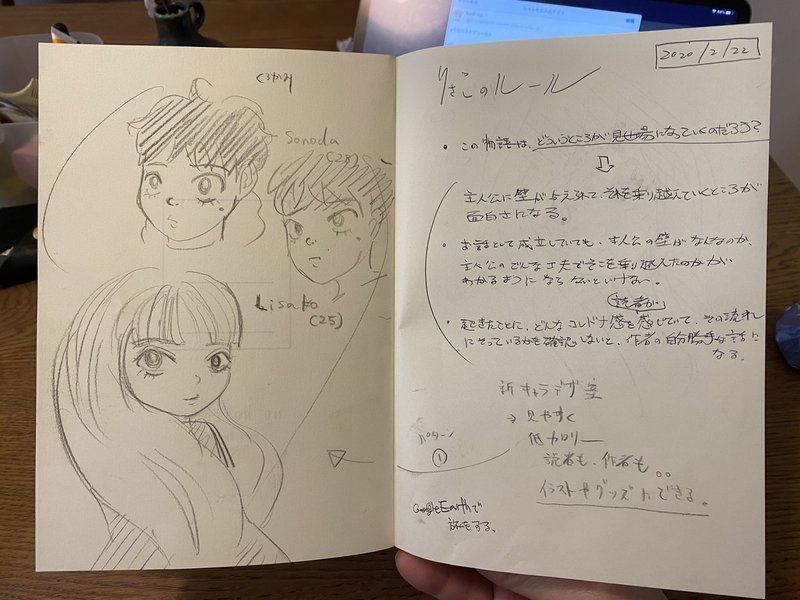 くろかみ
Sonoda
(28)
Lisako
(25)
2020/2/22
りさこのルール
・この物語は、どういうところが見せ場になっていくのだろう?
主人公に壁が与えられて、それを乗り越えていくところが
面白さになる。
・お話として成立していても、主人公の壁がなんなのか、
主人公のどんな工夫でそこを乗り越えたのかが
わかるようにならないといけない。
読者が
・起きたことに、どんな 感を感じていて、その流れ
にそっているかを確認しないと、作者の自分勝手な話に
なる。
新キャラデザ案
→見やすく
低カロリー
読者も、作者も。。
イラストやグッズにできる。
パターン
①
GoogleEarthで
旅をする。